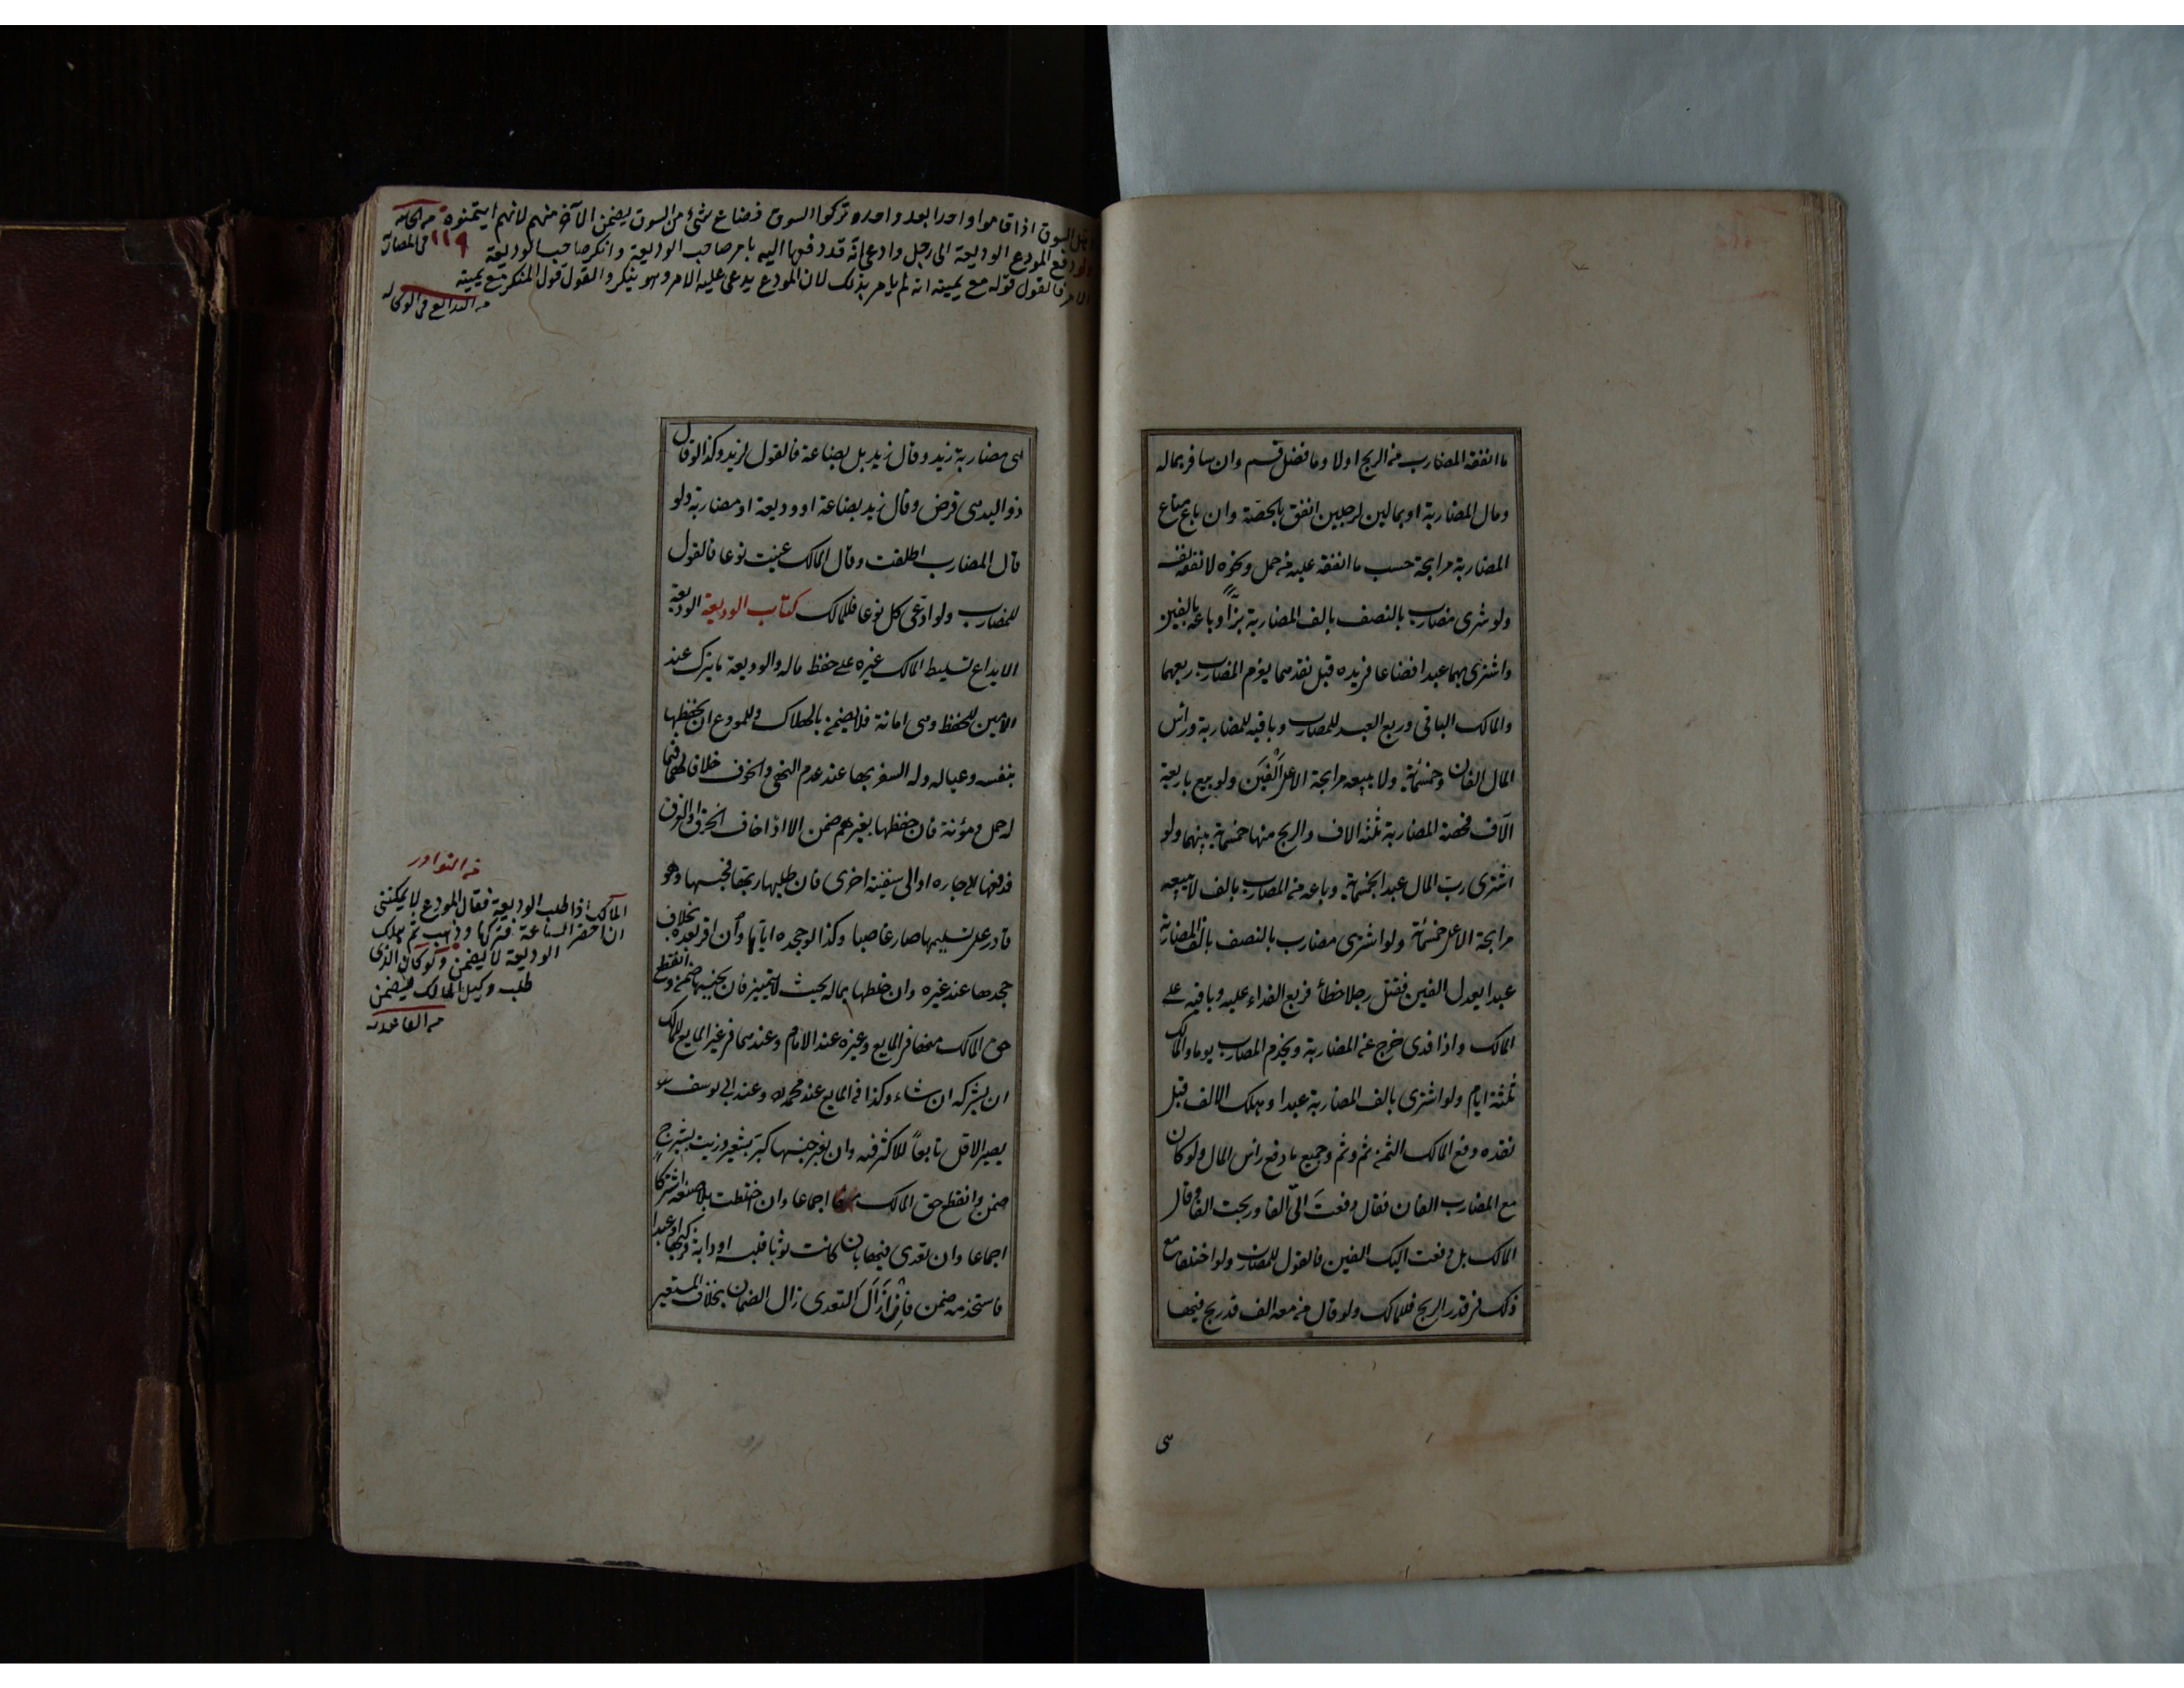 ما انفقه المضارب من الربح اولا وما فضل قسم وان سافر بماله
ومال المضاربة او بمالين لرجلين انفق بالحصة وان باع متاع
المضاربة مرابحة حسب ما انفقه عليه من حمل ونحوه لا نفقة نفسه
ولو شرى مضارب بالنصف بالف المضاربة بزاً وباعه بالفين
واشترى بهما عبدا فضاعا في يده قبل نقدهما يغرم المضارب ربعهما
والمالك الباقى وربع العبد للمضارب وباقيه للمضاربة ورأس
المال الفان وخمسمائة ولا يبيعه مرابحة الا على اَلْفَيَن ولو بيع باربعة
الآف فحصة المضاربة ثلثه الاف والربح منها خمسمائة بينهما ولو
اشترى رب المال عبدا بخمسمائة وباعه من المضارب بالف لا يبيعه
مرابحة الا على خمسمائة ولو اشترى مضارب بالنصف بالف المضاربة
عبدا يعدل الفين فقتل رجلا خطأ فربع الفداء عليه وباقيه على
المالك واذا فدى خرج عن المضاربة ويخدم المضارب يوما والمالك
ثلثة ايام ولو اشترى بالف المضاربة عبدا وهلك الالف قبل
نقده دفع المالك الثمن ثم وثم وجميع ما دفع رأس المال ولو كان
مع المضارب الفان فقال دفعتَ الىّ الفا وربحت الفا وقال
المالك بل دفعت اليك الفين فالقول للمضارب ولو اختلفا مع
ذلك فى قدر الربح فللمالك ولو قال من معه الف قد ربح فيها
هى
اهل السوق اذا قاموا واحدا بعد واحد وتركوا السوق فضاع شئ من السوق يضمن الآخر منهم لانهم ايتمنوه
١١٩
ولو دفع المودع الوديعة الى رجل وادعى انه قد دفعها اليه بامر صاحب الوديعة وانكر صاحب الوديعة
الامر فالقول قوله مع يمينه انه لم يامر بذلك لان المودع يدعى عليه الامر وهو ينكر والقول قول المنكر مع يمينه
من البدائع فى الوكاله
هى مضاربة زيد وقال زيد بل بضاعة فالقول لزيد وكذا لو قال
ذو اليد هى قرض وقال زيد بضاعة او وديعة او مضاربة ولو
قال المضارب اطلقت وقال المالك عينت نوعا فالقول
للمضارب ولو ادعى كل نوعا فللمالك كتاب الوديعة الوديعة
الايداع تسليط المالك غيره على حفظ ماله والوديعة ما يترك عند
الامين للحفظ وهى امانة فلا يضمن بالهلاك وللمودع ان يحفظها
بنفسه وعياله وله السفر بها عند عدم النهى والخوف خلافا لهما فيما
له حمل ومؤنة فان حفظها بغيرهم ضمن الا اذا خاف الحرق او الغرق
فدفعها الى جاره او الى سفينة اخرى فان طلبها ربها فحبسها وهو
قادر على تسليمها صار غاصبا وكذا لو جحده اياها وان اقر بعده بخلاف
جحدها عند غيره وان خلطها بماله بحيث لا يتميز فان بجنسها ضمن وانقطع
حق المالك منها فى المايع وغيره عند الامام وعندهما فى غير المايع للمالك
ان يشركه ان شاء وكذا فى المايع عند محمد وعند ابى يوسف
يصير الاقل تابعاً للاكثر فيه وان بغير جنسها كبر بشعير وزيت بشيرج
ضمن وانقطع حق المالك اجماعا وان اختلطت بلا صنعه اشتركا
اجماعا وان تعدى فيها بان كانت ثوبا فلبسه او دابة فركبها او عبدا
فاستخدمه ضمن فاِن اَزَالَ التعدى زال الضمان بخلاف المستعير
من النوادر
المالك اذا طلب الوديعة فقال المودع لا يمكننى
ان احضر الساعة فتركها وذهب ثم هلك
الوديعة لا يضمن ولو كان الذى
طلب وكيل المالك يضمن
من القاعديه